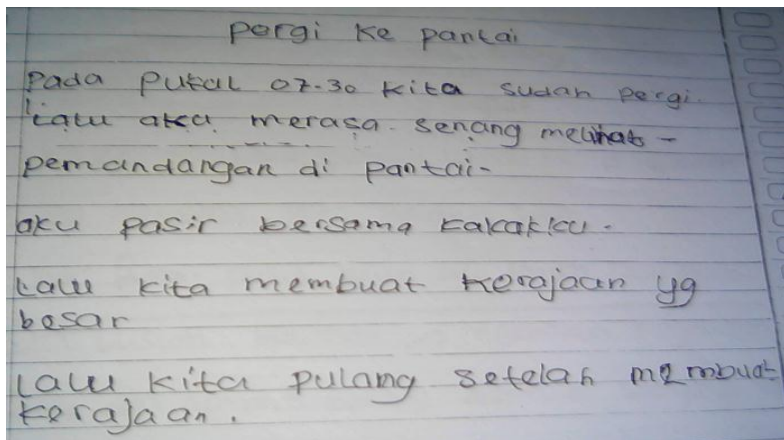 pergi ke pantai
Pada Pukul 07.30 kita sudah pergi.
Lalu aku merasa senang melihat -
pemandangan di pantai-
aku pasir bersama kakakku.
Lalu kita membuat kerajaan yg
besar
Lalu kita pulang setelah membuat
kerajaan.